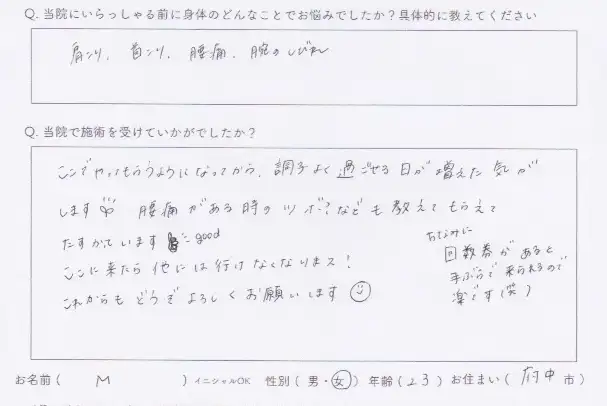 Q. 当院にいらっしゃる前に身体のどんなことでお悩みでしたか？具体的に教えてください
肩こり、首こり、腰痛、腕のしびれ
Q. 当院で施術を受けていかがでしたか？
ここでやってもらうようになってから、調子よく過ごせる日が増えた気が
します 腰痛がある時のツボ？なども教えてもらえて
たすかています good
ここに来たら他には行けなくなりまス！
これからもどうぞよろしくお願いします
ちなみに
回数券があると
手ぶらで来られるので
楽です(笑)
お名前 ( M ) イニシャルOK 性別 ( 男・女 ) 年齢 ( 23 ) お住まい ( 府中 市 )